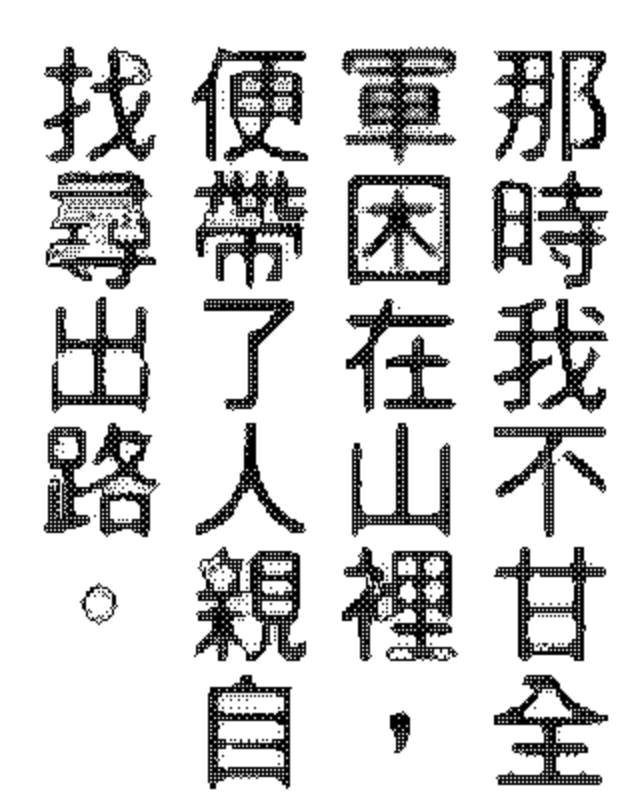 那時我不甘全
軍困在山裡，
便帶了人親自
找尋出路。